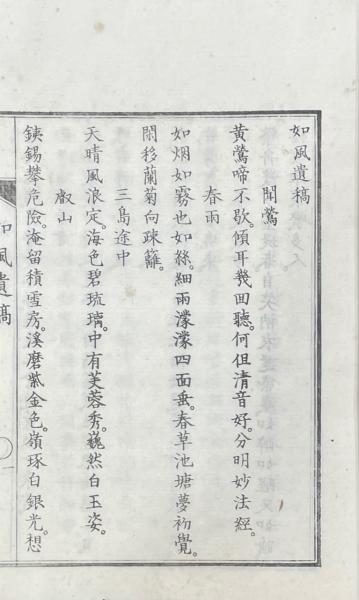 如風遺稿
聞鶯
黃鶯啼不歇。傾耳幾回聽。何但清音好。分明妙法經。
春雨
如烟如霧也如絲。細雨濛濛四面垂。春草池塘夢初覺。
閑移蘭菊向疎籬。
三島途中
天晴風浪定。海色碧琉璃。中有芙蓉秀。巍然白玉姿。
㕡山
銕錫攀危險。淹留積雪房。溪磨紫金色。嶺琢白銀光。想
如風遺稿
一